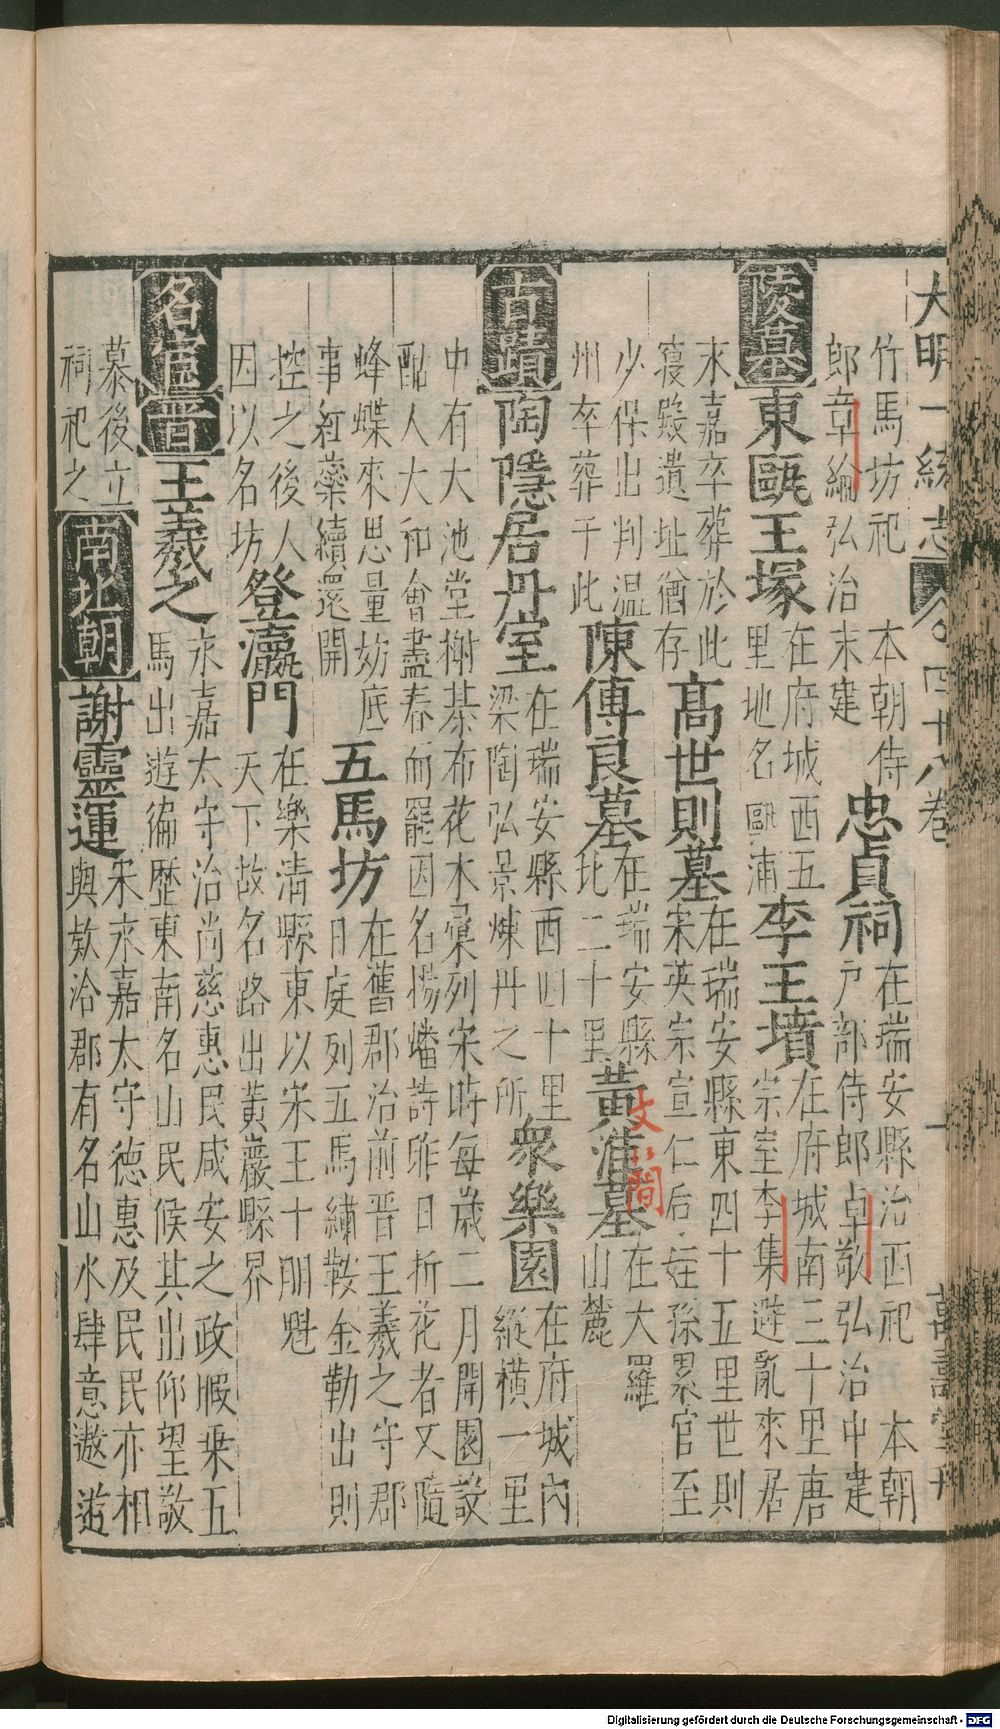 大明一統志 四十八卷 十 萬壽堂刊
竹馬坊祀 本朝侍
郎章綸弘治末建
忠貞祠
在瑞安縣治西祀 本朝
戶部侍郎卓敬弘治中建
陵墓 東甌王塚
在府城西五
里地名甌浦
李王墳
在府城南三十里唐
宗室李集避亂來居
永嘉卒葬於此
寢毀遺址猶存
高世則墓
在瑞安縣東四十五里世則
宋英宗宣仁后姪孫累官至
少保出判温
州卒葬于此
陳傅良墓
在瑞安縣
北二十里
黃淮墓
文簡
在大羅
山麓
古蹟 陶隱居丹室
在瑞安縣西四十里
梁陶弘景煉丹之所
衆樂園
在府城內
縱橫一里
中有大池堂榭棊布花木彙列宋時每歲二月開園設
酤人大和會盡春而罷因名揚蟠詩昨日折花者又隨
蜂蝶來思量妨底
事紅蘂續還開
五馬坊
在舊郡治前晉王羲之守郡
日庭列五馬繡鞍金勒出則
控之後人
因以名坊
登瀛門
在樂清縣東以宋王十朋魁
天下故名路出黃巖縣界
名宦 晉 王羲之
永嘉太守治尚慈惠民咸安之政暇乘五
馬出遊徧歷東南名山民候其出仰望敬
慕後立
祠祀之
南北朝 謝靈運
宋永嘉太守德惠及民民亦相
與欵洽郡有名山水肆意遨遊
Digitalisierung gefördert durch die Deutsche Forschungsgemeinschaft - DFG